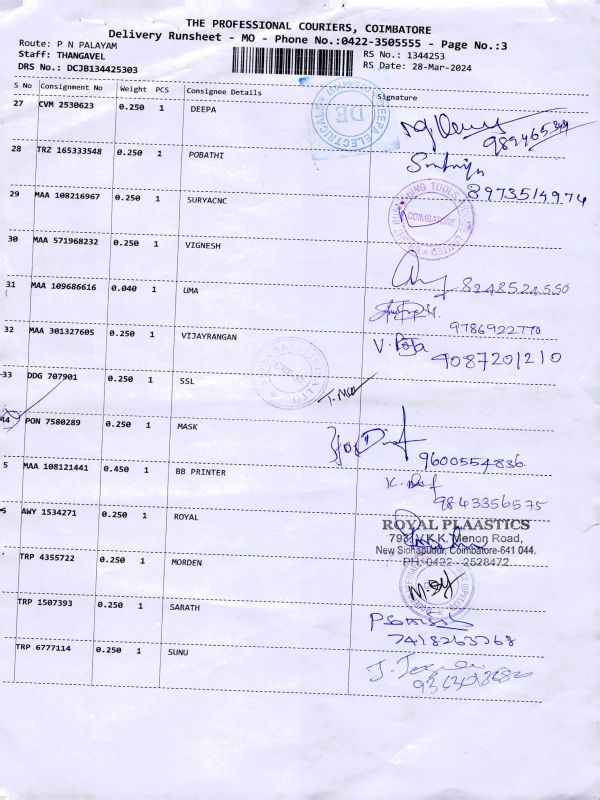 THE PROFESSIONAL COURIERS, COIMBATORE
Delivery Runsheet - MO - Phone No.:0422-3505555 - Page No.:3
Route: P N PALAYAM
RS No.: 1344253
Staff: THANGAVEL
RS Date: 28-Mar-2024
DRS No.: DCJB134425303
S No Consignment No Weight PCS Consignee Details Signature
27 CVM 2530623 0.250 1 DEEPA
28 TRZ 165333548 0.250 1 POBATHI
8973514974
29 MAA 108216967 0.250 1 SURYACNC
COIMBATORE
30 MAA 571968232 0.250 1 VIGNESH
8248524550
31 MAA 109686616 0.040 1 UMA
9786922770
32 MAA 301327605 0.250 1 VIJAYRANGAN
9087201210
33 DDG 707901 0.250 1 SSL
PON 7580289 0.250 1 MASK
9600554836
5 MAA 108121441 0.450 1 BB PRINTER
9843356575
AWY 1534271 0.250 1 ROYAL
ROYAL PLAASTICS
V.K.K. Menon Road,
New Sidhapudur, Coimbatore-641 044.
PH: 0422 - 2528472
TRP 4355722 0.250 1 MORDEN
TRP 1507393 0.250 1 SARATH
TRP 6777114 0.250 1 SUNU